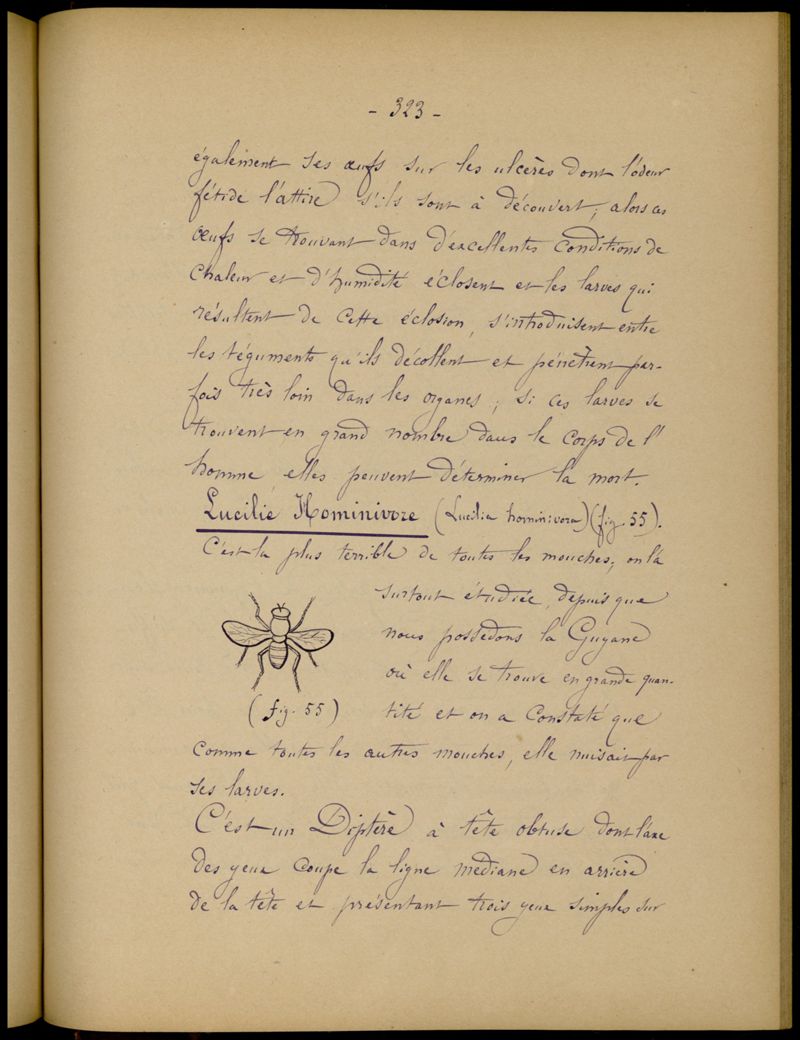 - 323 -
également ses œufs sur les ulcères dont l'odeur
fétide l'attire s'ils sont à découvert ; alors ces
œufs se trouvant dans d'excellentes conditions de
chaleur et d'humidité éclosent et les larves qui
résultent de cette éclosion, s'introduisent entre
les téguments qu'ils décollent et pénètrent par-
fois très loin dans les organes ; si ces larves se
trouvent en grand nombre dans le corps de l'
homme elles peuvent déterminer la mort.
Lucilie Hominivore (Lucilia hominivora) (fig. 55).
C'est la plus terrible de toutes les mouches ; on l'a
surtout étudiée, depuis que
nous possédons la Guyane
où elle se trouve en grande quan-
(fig. 55) tité et on a constaté que
comme toutes les autres mouches, elle nuisait par
ses larves.
C'est un Diptère à tête obtuse dont l'axe
des yeux coupe la ligne médiane en arrière
de la tête et présentant trois yeux simples sur